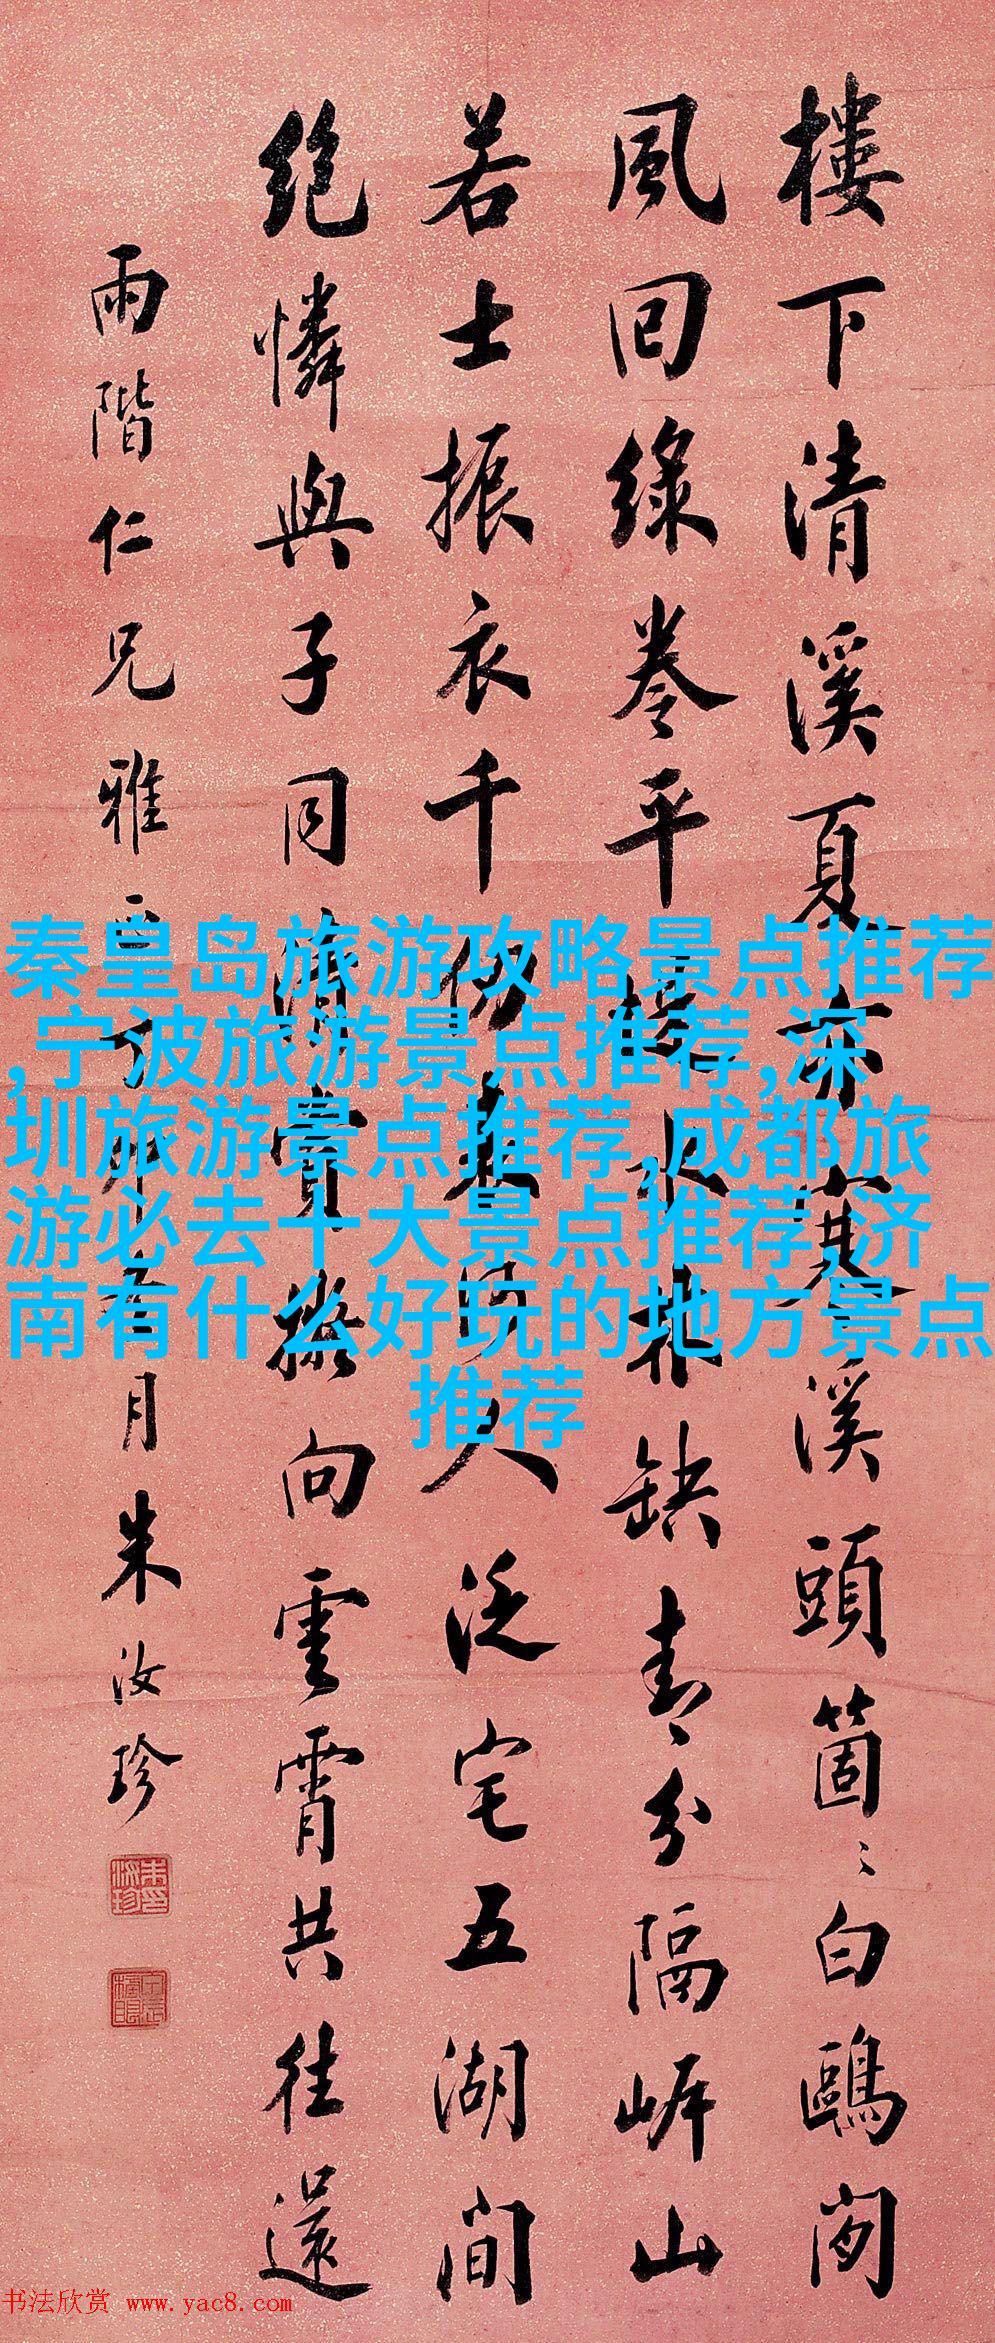 樓下清溪夏亦寒溪頭箇〻白鷗閑
風回綠卷平堤水林缺青〻分隔岸山
若士振衣千仞表何人泛宅五湖間
絕憐與子同清賞擬向雲霄共往還
雨階仁兄雅正丁卯五月朱汝珍
秦皇岛旅游攻略景点推荐
,宁波旅游景点推荐,深
圳旅游景点推荐,成都旅
游必去十大景点推荐,济
南有什么好玩的地方景点
推荐
书法欣赏 www.yac8.com